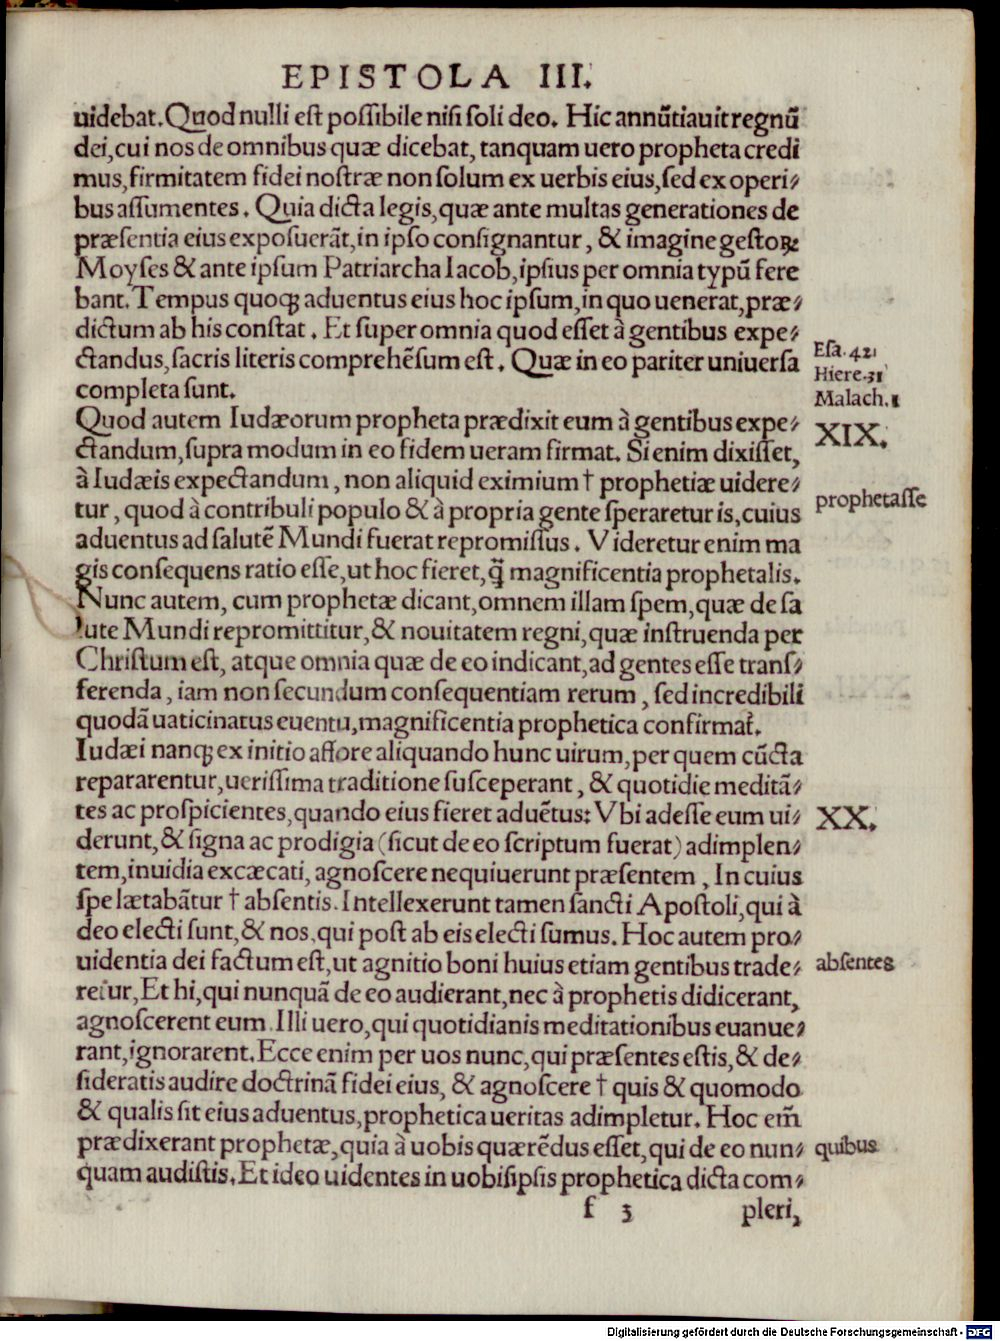 EPISTOLA III.
uidebat. Quod nulli est possibile nisi soli deo. Hic annũtiauit regnũ
dei, cui nos de omnibus quæ dicebat, tanquam uero propheta credi
mus, firmitatem fidei nostræ non solum ex uerbis eius, sed ex operi⸗
bus assumentes. Quia dicta legis, quæ ante multas generationes de
præsentia eius exposuerãt, in ipso consignantur, & imagine gestoꝝ
Moyses & ante ipsum Patriarcha Iacob, ipsius per omnia typũ fere
bant. Tempus quoqꝫ aduentus eius hoc ipsum, in quo uenerat, præ⸗
dictum ab his constat. Et super omnia quod esset à gentibus expe⸗
ctandus, sacris literis comprehẽsum est. Quæ in eo pariter uniuersa
completa sunt.
Esa. 42.
Hiere. 31
Malach. 1
Quod autem Iudæorum propheta prædixit eum à gentibus expe⸗
XIX.
ctandum, supra modum in eo fidem ueram firmat. Si enim dixisset,
à Iudæis expectandum, non aliquid eximium † prophetiæ uidere⸗
prophetasse
tur, quod à contribuli populo & à propria gente speraretur is, cuius
aduentus ad salutẽ Mundi fuerat repromissus. Videretur enim ma
gis consequens ratio esse, ut hoc fieret, q̃ magnificentia prophetalis.
Nunc autem, cum prophetæ dicant, omnem illam spem, quæ de sa
lute Mundi repromittitur, & nouitatem regni, quæ instruenda per
Christum est, atque omnia quæ de eo indicant, ad gentes esse trans⸗
ferenda, iam non secundum consequentiam rerum, sed incredibili
quodã uaticinatus euentu, magnificentia prophetica confirmat̃.
Iudæi nanqꝫ ex initio affore aliquando hunc uirum, per quem cũcta
repararentur, uerissima traditione susceperant, & quotidie meditã⸗
tes ac prospicientes, quando eius fieret aduẽtus: Vbi adesse eum ui⸗
XX.
derunt, & signa ac prodigia (sicut de eo scriptum fuerat) adimplen⸗
tem, inuidia excæcati, agnoscere nequiuerunt præsentem, In cuius
spe lætabãtur † absentis. Intellexerunt tamen sancti Apostoli, qui à
deo electi sunt, & nos, qui post ab eis electi sumus. Hoc autem pro⸗
uidentia dei factum est, ut agnitio boni huius etiam gentibus trade⸗
absentes
retur, Et hi, qui nunquã de eo audierant, nec à prophetis didicerant,
agnoscerent eum. Illi uero, qui quotidianis meditationibus euanue⸗
rant, ignorarent. Ecce enim per uos nunc, qui præsentes estis, & de⸗
sideratis audire doctrinã fidei eius, & agnoscere † quis & quomodo
& qualis sit eius aduentus, prophetica ueritas adimpletur. Hoc em̃
prædixerant prophetæ, quia à uobis quærẽdus esset, qui de eo nun⸗
quibus
quam audistis. Et ideo uidentes in uobisipsis prophetica dicta com⸗
f 3 pleri,
Digitalisierung gefördert durch die Deutsche Forschungsgemeinschaft - DFG